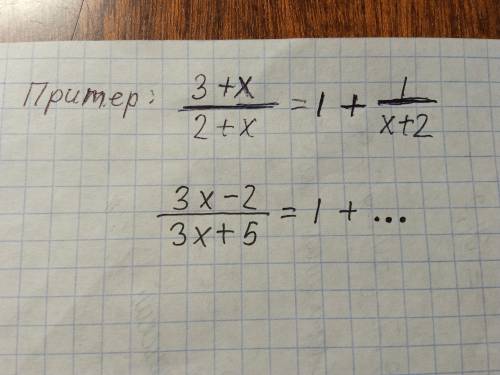 Пример: (3+x)/(2+x) = 1 + 1/(x+2)
(3x-2)/(3x+5) = 1 + ...